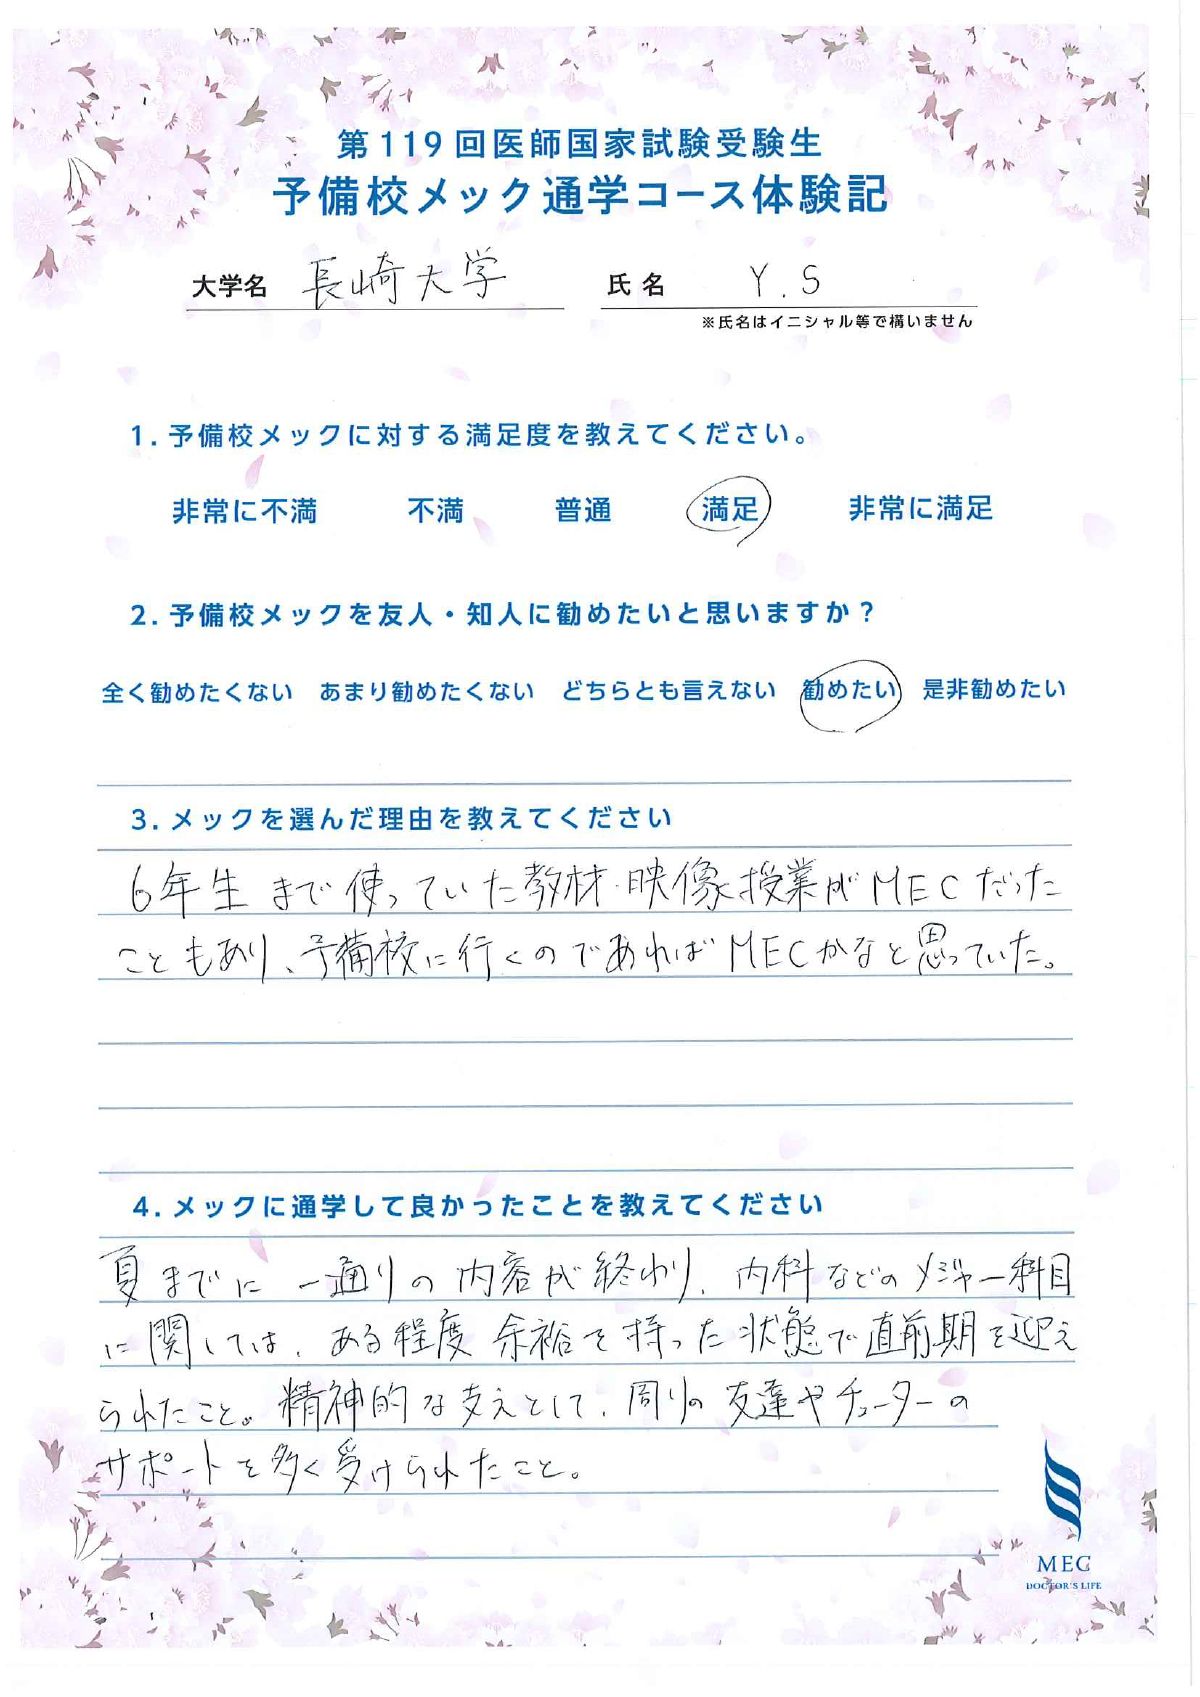 第119回医師国家試験受験生
予備校メック通学コース体験記
大学名 長崎大学 氏名 Y.S
※氏名はイニシャル等で構いません
1.予備校メックに対する満足度を教えてください。
非常に不満 不満 普通 満足 非常に満足
2.予備校メックを友人・知人に勧めたいと思いますか？
全く勧めたくない あまり勧めたくない どちらとも言えない 勧めたい 是非勧めたい
3.メックを選んだ理由を教えてください
6年生まで使っていた教材・映像授業がMECだった
こともあり、予備校に行くのであればMECかなと思っていた。
4.メックに通学して良かったことを教えてください
夏までに一通りの内容が終わり、内科などのメジャー科目
に関しては、ある程度余裕を持った状態で直前期を迎え
られたこと。精神的な支えとして、周りの友達やチューターの
サポートを多く受けられたこと。
MEC
DOCTOR'S LIFE